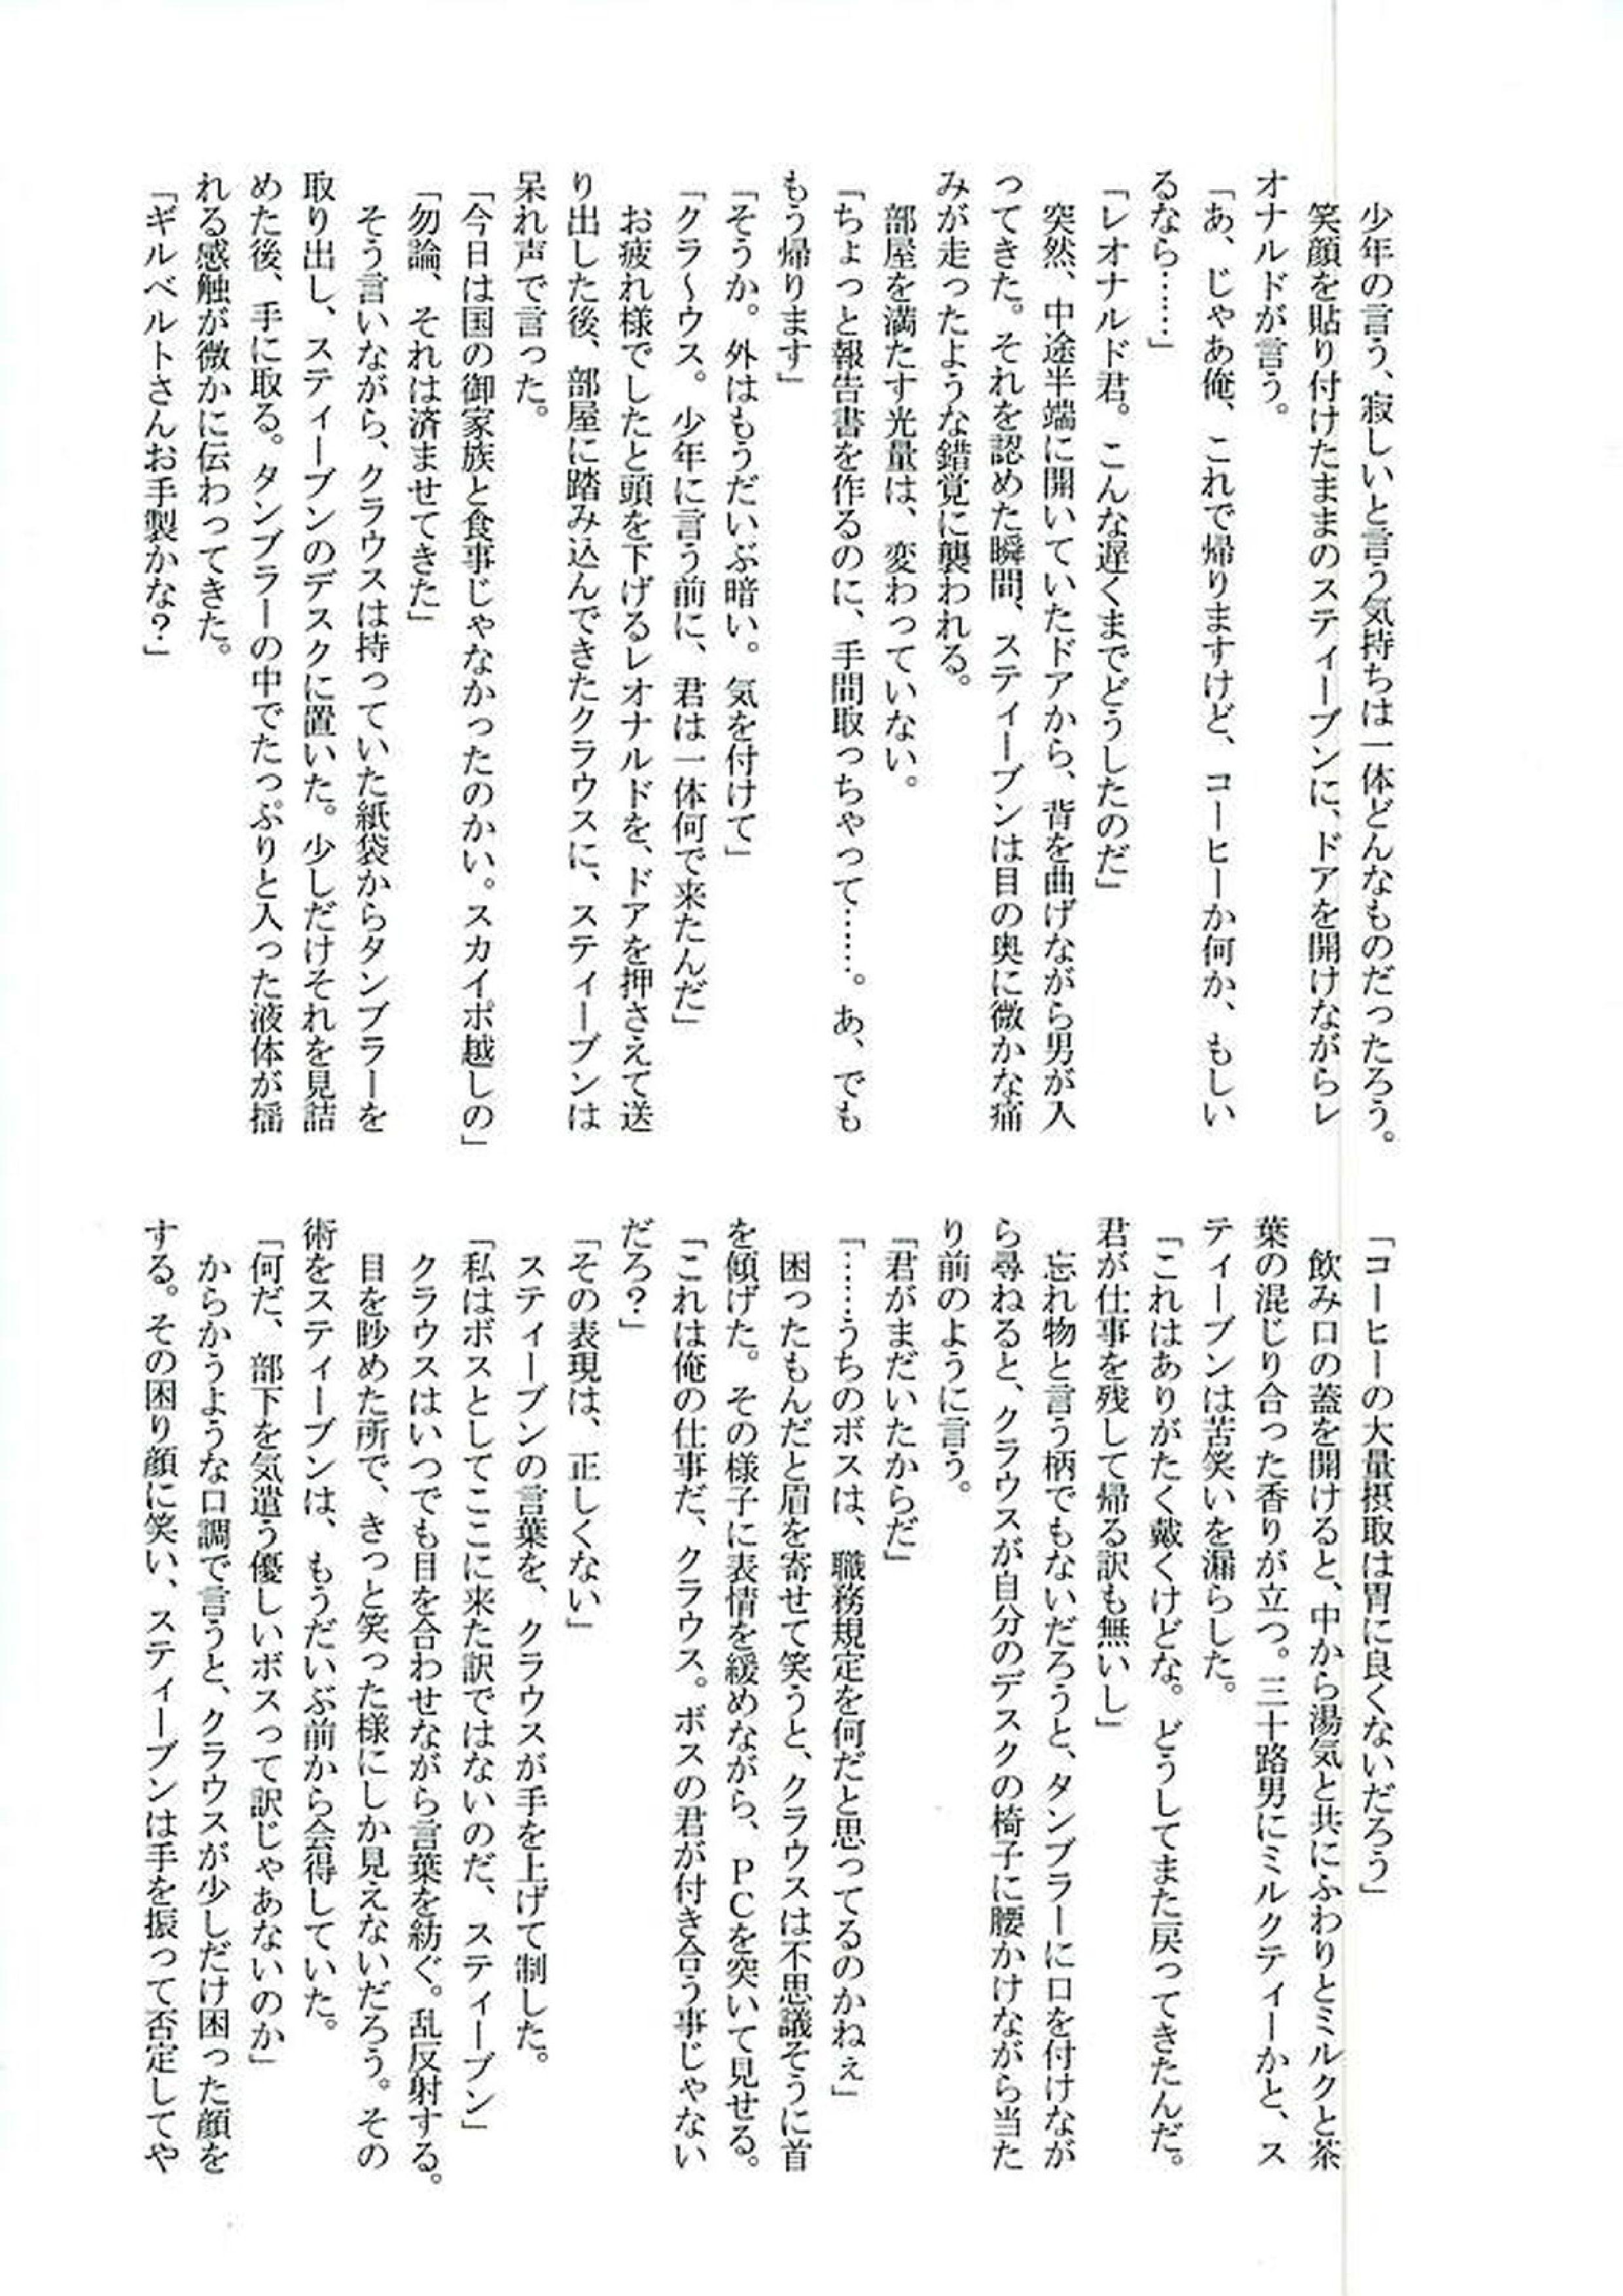 少年の言う、寂しいと言う気持ちは一体どんなものだったろう。
笑顔を貼り付けたままのスティーブンに、ドアを開けながらレ
オナルドが言う。
「あ、じゃあ俺、これで帰りますけど、コーヒーか何か、もしい
るなら……」
「レオナルド君。こんな遅くまでどうしたのだ」
突然、中途半端に開いていたドアから、背を曲げながら男が入
ってきた。それを認めた瞬間、スティーブンは目の奥に微かな痛
みが走ったような錯覚に襲われる。
部屋を満たす光量は、変わっていない。
「ちょっと報告書を作るのに、手間取っちゃって……。あ、でも
もう帰ります」
「そうか。外はもうだいぶ暗い。気を付けて」
「クラ～ウス。少年に言う前に、君は一体何で来たんだ」
お疲れ様でしたと頭を下げるレオナルドを、ドアを押さえて送
り出した後、部屋に踏み込んできたクラウスに、スティーブンは
呆れ声で言った。
「今日は国の御家族と食事じゃなかったのかい。スカイポ越しの」
「勿論、それは済ませてきた」
そう言いながら、クラウスは持っていた紙袋からタンブラーを
取り出し、スティーブンのデスクに置いた。少しだけそれを見詰
めた後、手に取る。タンブラーの中でたっぷりと入った液体が揺
れる感触が微かに伝わってきた。
「ギルベルトさんお手製かな？」
「コーヒーの大量摂取は胃に良くないだろう」
飲み口の蓋を開けると、中から湯気と共にふわりとミルクと茶
葉の混じり合った香りが立つ。三十路男にミルクティーかと、ス
ティーブンは苦笑いを漏らした。
「これはありがたく戴くけどな。どうしてまた戻ってきたんだ。
君が仕事を残して帰る訳も無いし」
忘れ物と言う柄でもないだろうと、タンブラーに口を付けなが
ら尋ねると、クラウスが自分のデスクの椅子に腰かけながら当た
り前のように言う。
「君がまだいたからだ」
「……うちのボスは、職務規定を何だと思ってるのかねぇ」
困ったもんだと眉を寄せて笑うと、クラウスは不思議そうに首
を傾げた。その様子に表情を緩めながら、ＰＣを突いて見せる。
「これは俺の仕事だ、クラウス。ボスの君が付き合う事じゃない
だろ？」
「その表現は、正しくない」
スティーブンの言葉を、クラウスが手を上げて制した。
「私はボスとしてここに来た訳ではないのだ、スティーブン」
クラウスはいつでも目を合わせながら言葉を紡ぐ。乱反射する。
目を眇めた所で、きっと笑った様にしか見えないだろう。その
術をスティーブンは、もうだいぶ前から会得していた。
「何だ、部下を気遣う優しいボスって訳じゃあないのか」
からかうような口調で言うと、クラウスが少しだけ困った顔を
する。その困り顔に笑い、スティーブンは手を振って否定してや